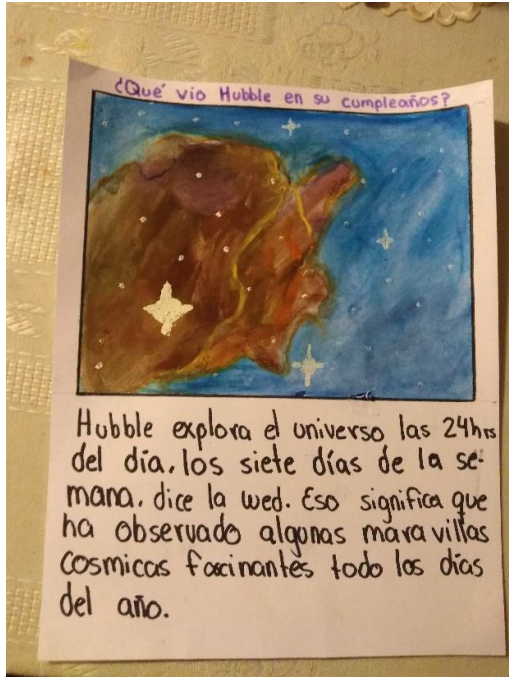 ¿Qué vio Hubble en su cumpleaños?
Hubble explora el universo las 24hrs
del día, los siete días de la se-
mana, dice la wed. Eso significa que
ha observado algunas maravillas
cosmicas facinantes todo los días
del año.